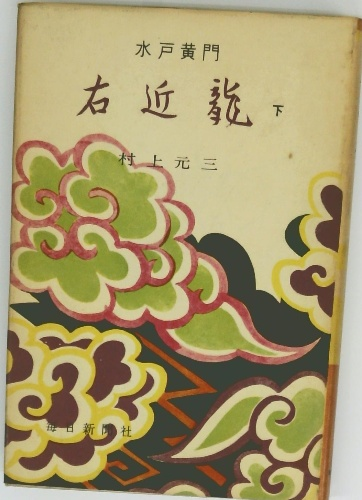 水戸黄門
右近龍 下
村上元三
毎日新聞社